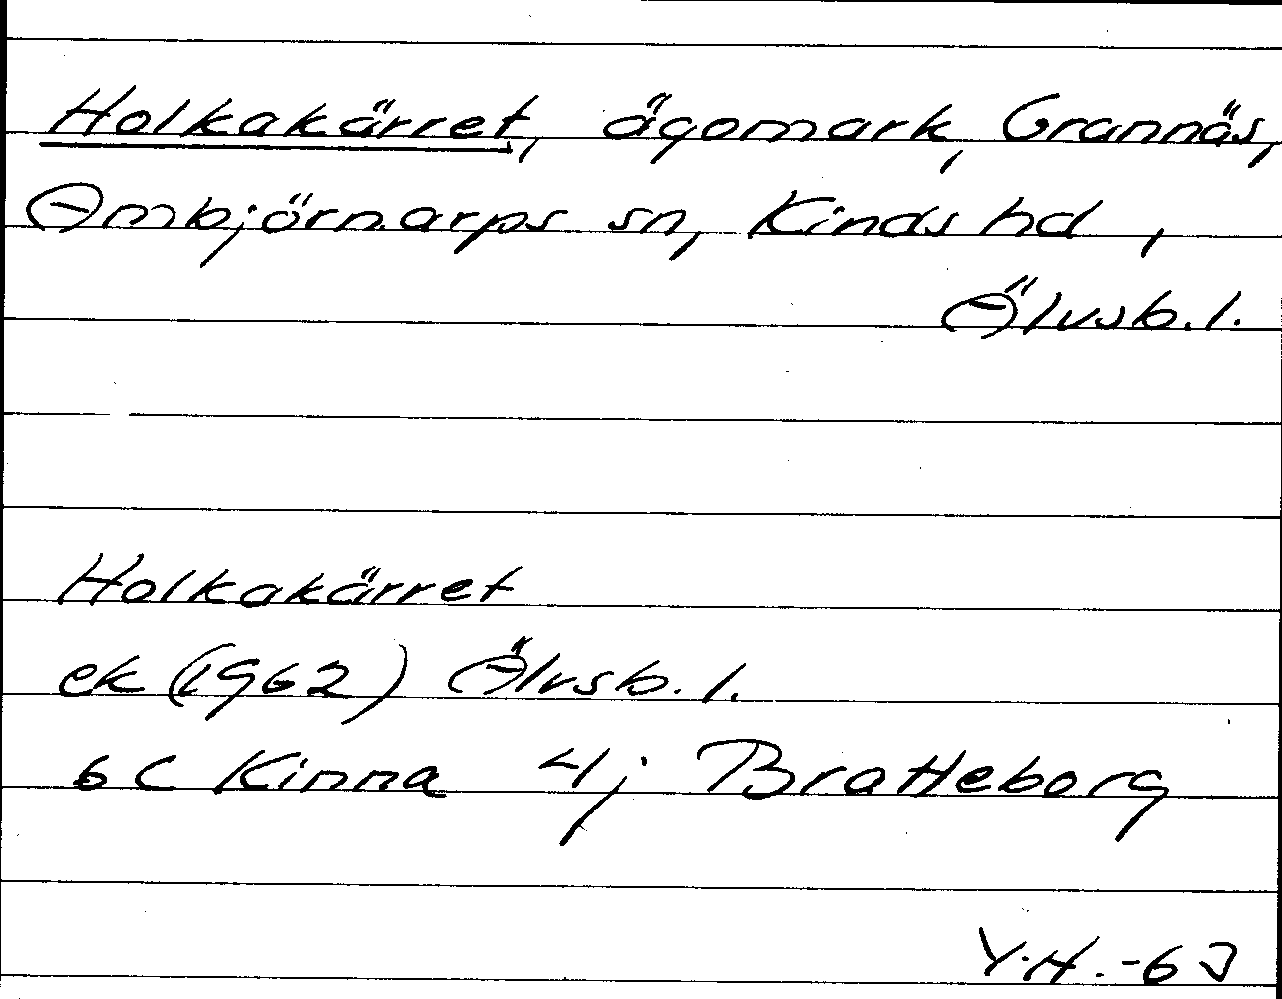 Holkakärret, ägomark, Grannäs,
Ambjörnarps sn, Kinds hd,
Älvsb. l.
Holkakärret
ek (1962) Älvsb. l.
6 C Kinna 4j Bratteborg
Y.H. -63